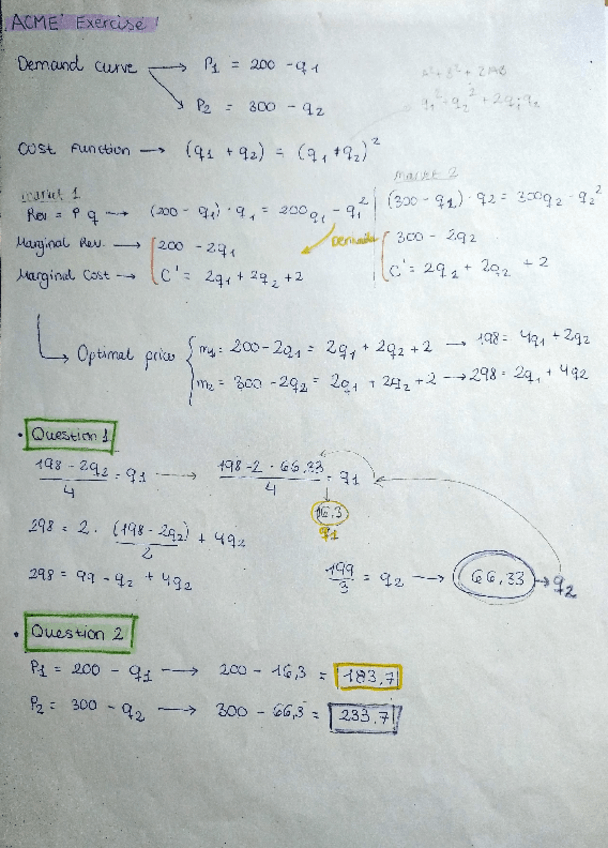 ACME Exercise!
Demand curve → P1 = 200 - q1
→ P2 = 300 - q2
A² + B² + 2AB
q1² + q2² + 2q1q2
Cost Function → (q1 + q2) = (q1 + q2)²
market 1
market 2
Rev = P q → (200 - q1) · q1 = 200q1 - q1²
(300 - q1) · q2 = 300q2 - q2²
Marginal Rev. → 200 - 2q1
300 - 2q2
Marginal Cost → C' = 2q1 + 2q2 + 2
C' = 2q2 + 2q2 + 2
→ Optimal price m1 = 200 - 2q1 = 2q1 + 2q2 + 2 → 198 = 4q1 + 2q2
m2 = 300 - 2q2 = 2q1 + 2q2 + 2 → 298 = 2q1 + 4q2
• Question 1
198 - 2q2 / 4 = q1 → 198 - 2 · 66,33 / 4 = q1
16,3
q1
298 = 2 · (198 - 2q2) / 2 + 4q2
298 = 99 - q2 + 4q2
199 / 3 = q2 → 66,33 → q2
• Question 2
P1 = 200 - q1 → 200 - 16,3 = 183,7
P2 = 300 - q2 → 300 - 66,3 = 233,7